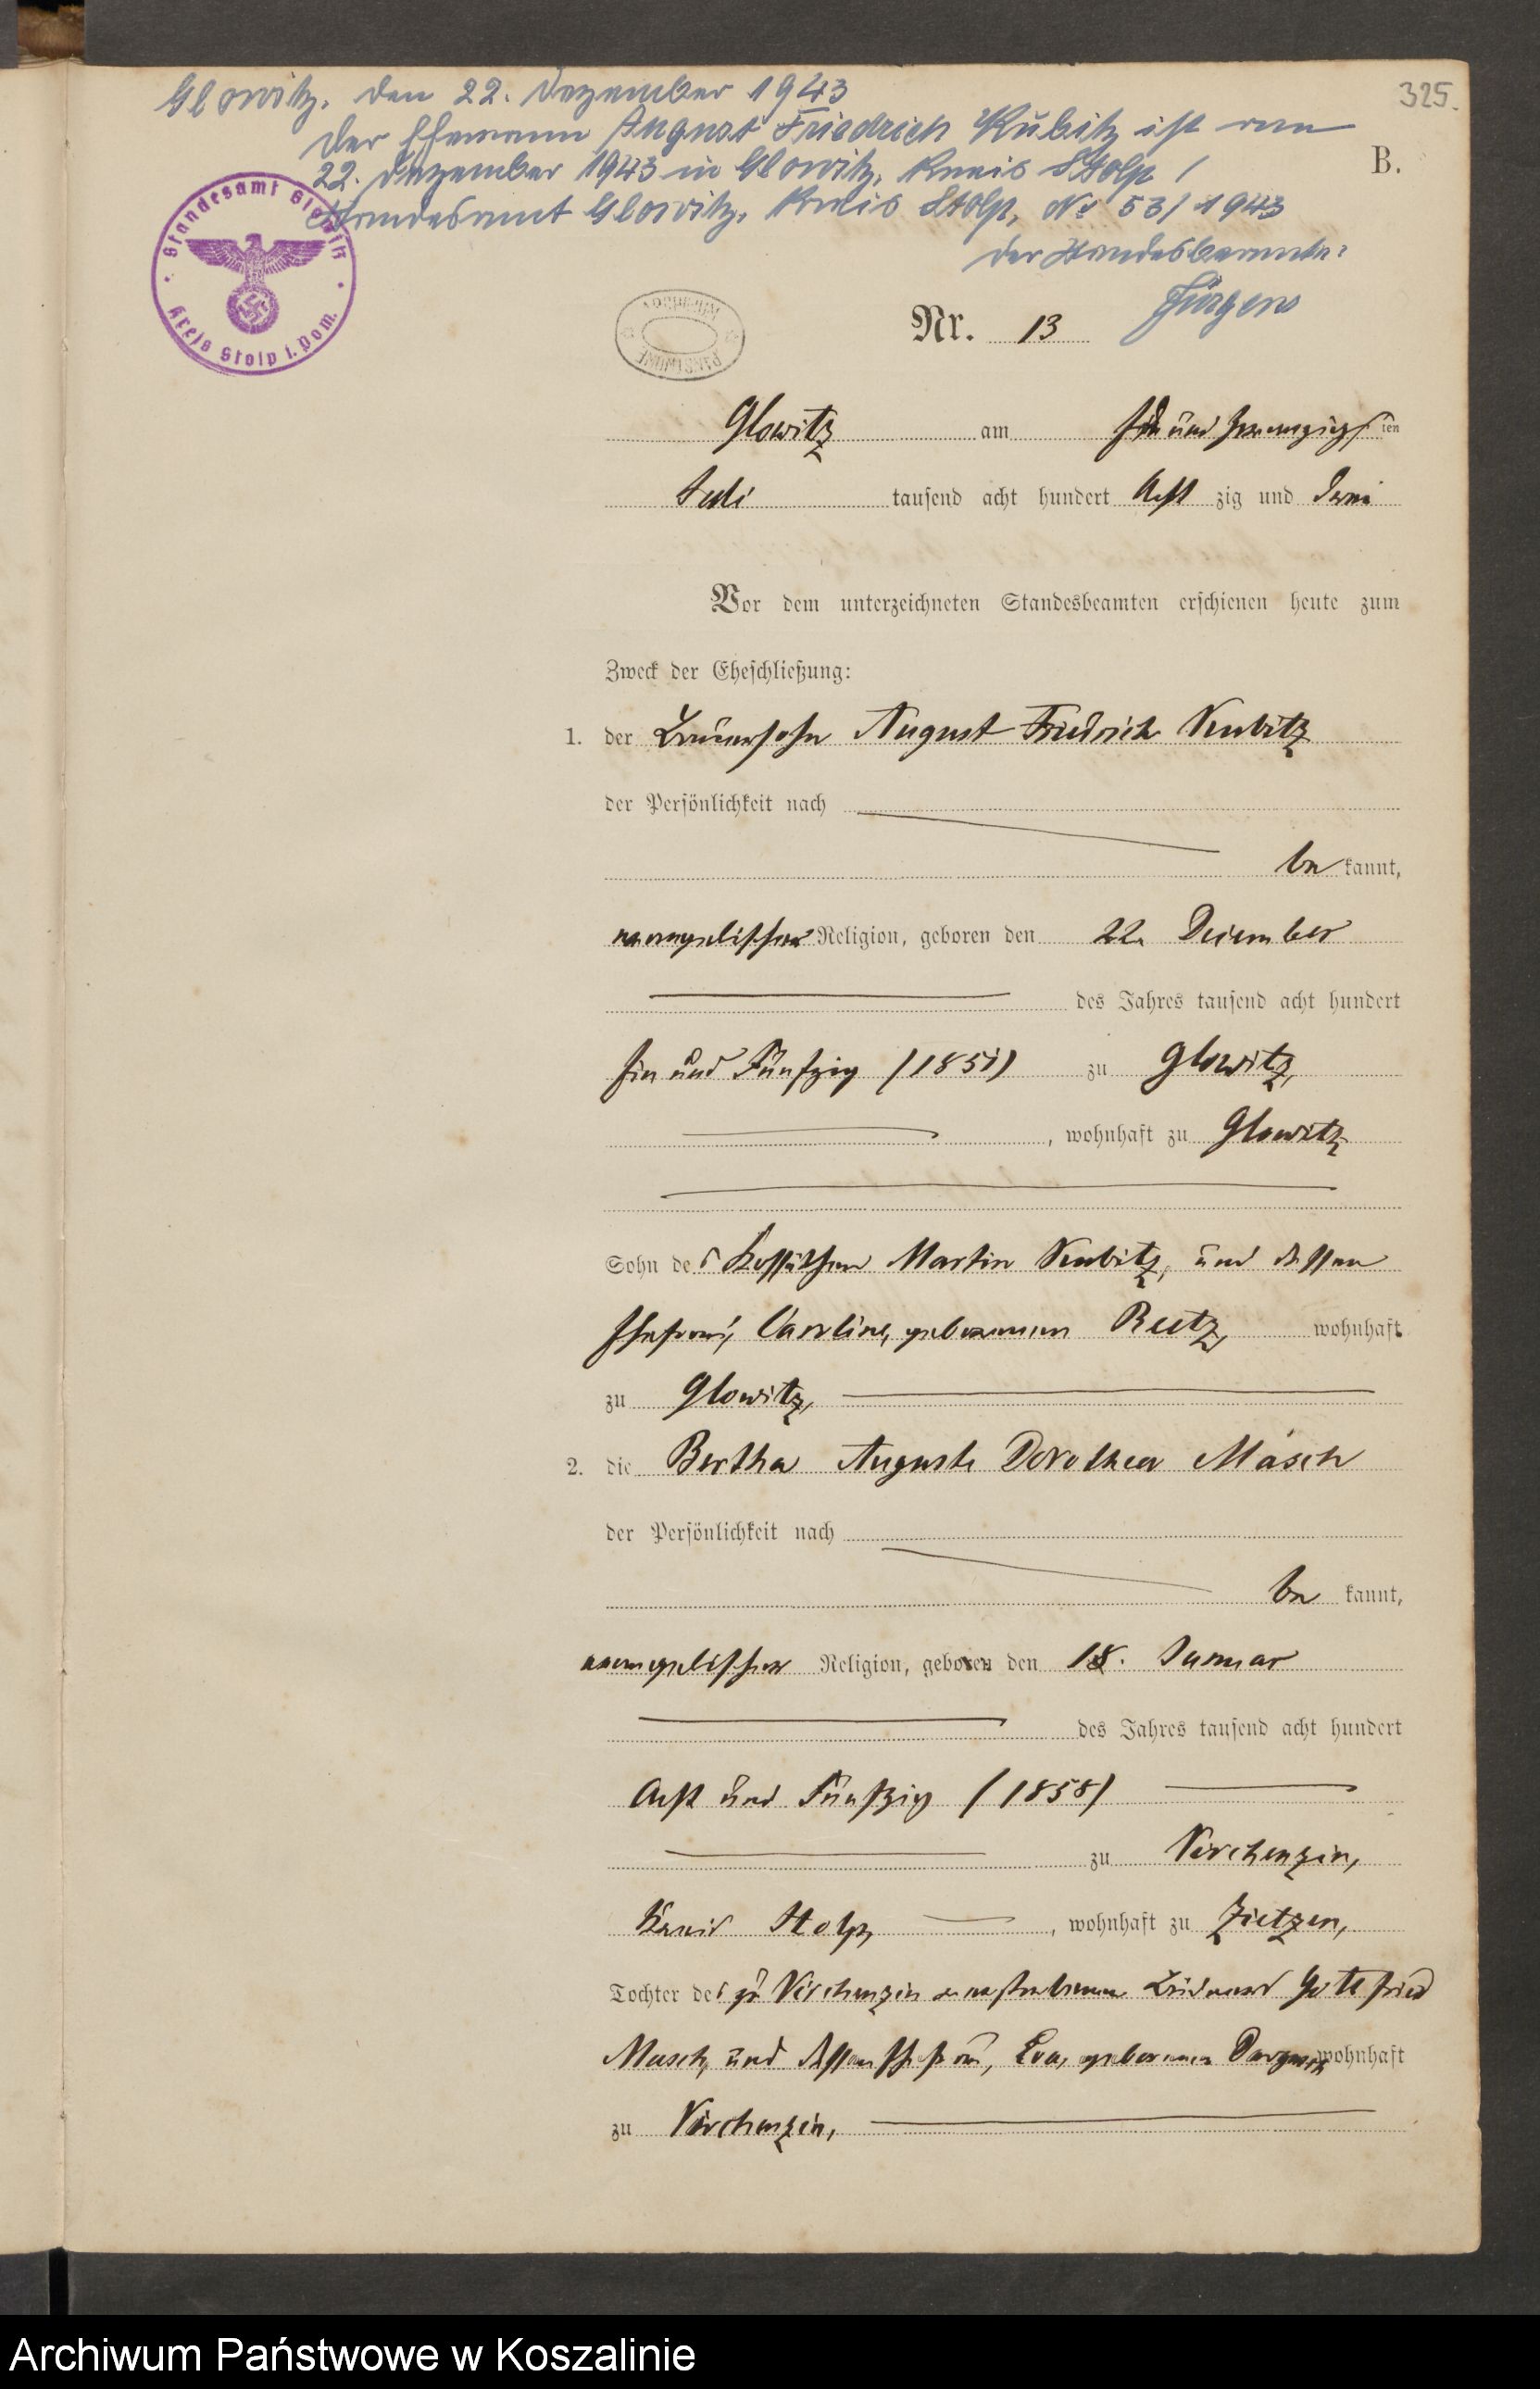 325.
Glowitz, den 22. Dezember 1943
Der Ehemann August Friedrich Kubitz ist am
22. Dezember 1943 in Glowitz, Kreis Stolp /
Standesamt Glowitz, Kreis Stolp, Nr 53/1943
Der Standesbeamte:
Jürgens
B.
Standesamt Glowitz
Kreis Stolp i. Pom.
ARCHIWUM
PAŃSTWOWE
Nr. 13
Glowitz am Ein und zwanzigsten
Juli tausend acht hundert Acht zig und drei
Vor dem unterzeichneten Standesbeamten erschienen heute zum
Zweck der Eheschließung:
1. der Bauersohn August Friedrich Kubitz
der Persönlichkeit nach
be kannt,
evangelischer Religion, geboren den 22. Dezember
des Jahres tausend acht hundert
Ein und Fünfzig (1851) zu Glowitz,
, wohnhaft zu Glowitz
Sohn des Kossäthen Martin Kubitz, und dessen
Ehefrau, Caroline, geborenen Reetz, wohnhaft
zu Glowitz,
2. die Bertha Auguste Dorothea Mäsch
der Persönlichkeit nach
be kannt,
evangelischer Religion, geboren den 18. Januar
des Jahres tausend acht hundert
Acht und Fünfzig (1858)
zu Virchenzin,
Kreis Stolp, , wohnhaft zu Zietzen,
Tochter des zu Virchenzin verstorbenen Gottfried
Masch, und dessen Ehefrau, Eva, geborenen wohnhaft
zu Virchenzin,
Archiwum Państwowe w Koszalinie